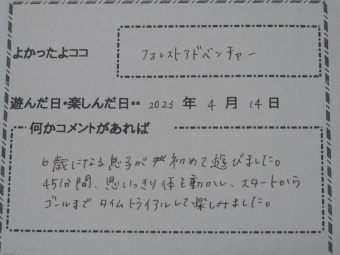 よかったよココ
フォレストアドベンチャー
遊んだ日・楽しんだ日・・2023 年 4 月 14 日
何かコメントがあれば
6歳になる息子が初めて遊びました。
45分間、思いっきり体を動かし、スタートから
ゴールまでタイムトライアルして楽しみました。